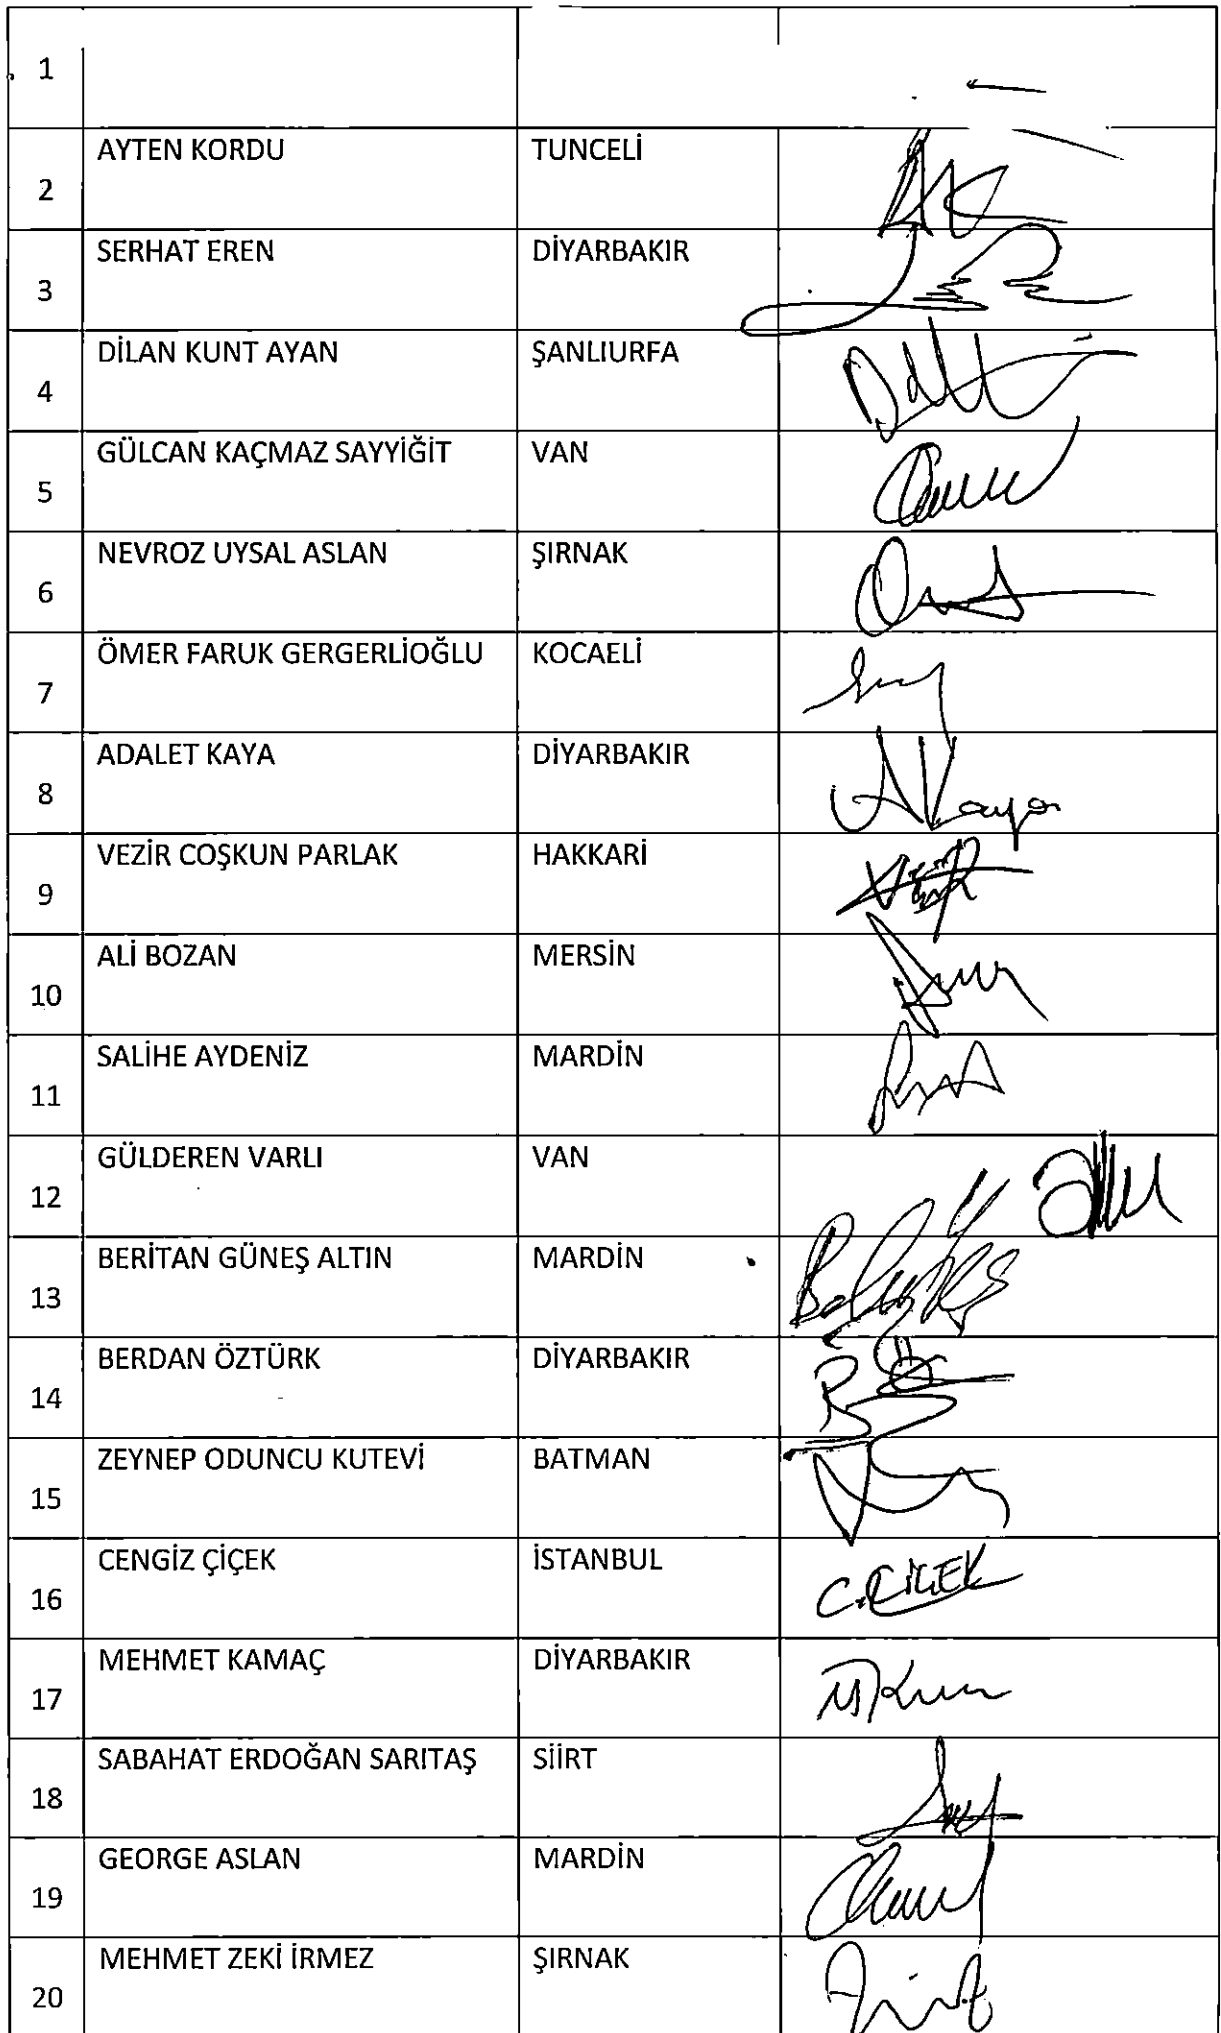 1
AYTEN KORDU TUNCELİ
2
SERHAT EREN DİYARBAKIR
3
DİLAN KUNT AYAN ŞANLIURFA
4
GÜLCAN KAÇMAZ SAYYİĞİT VAN
5
NEVROZ UYSAL ASLAN ŞIRNAK
6
ÖMER FARUK GERGERLİOĞLU KOCAELİ
7
ADALET KAYA DİYARBAKIR
8
VEZİR COŞKUN PARLAK HAKKARİ
9
ALİ BOZAN MERSİN
10
SALİHE AYDENİZ MARDİN
11
GÜLDEREN VARLI VAN
12
BERİTAN GÜNEŞ ALTIN MARDİN
13
BERDAN ÖZTÜRK DİYARBAKIR
14
ZEYNEP ODUNCU KUTEVİ BATMAN
15
CENGİZ ÇİÇEK İSTANBUL
16 C.ÇİÇEK
MEHMET KAMAÇ DİYARBAKIR
17
SABAHAT ERDOĞAN SARITAŞ SİİRT
18
GEORGE ASLAN MARDİN
19
MEHMET ZEKİ İRMEZ ŞIRNAK
20